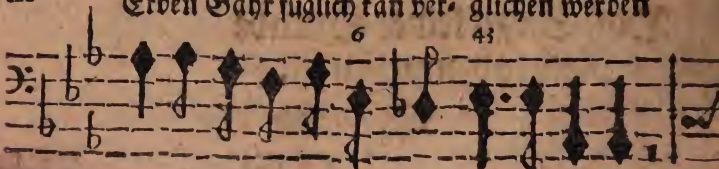 Erden Gahr füglich kan ver- glichen werden
6 43